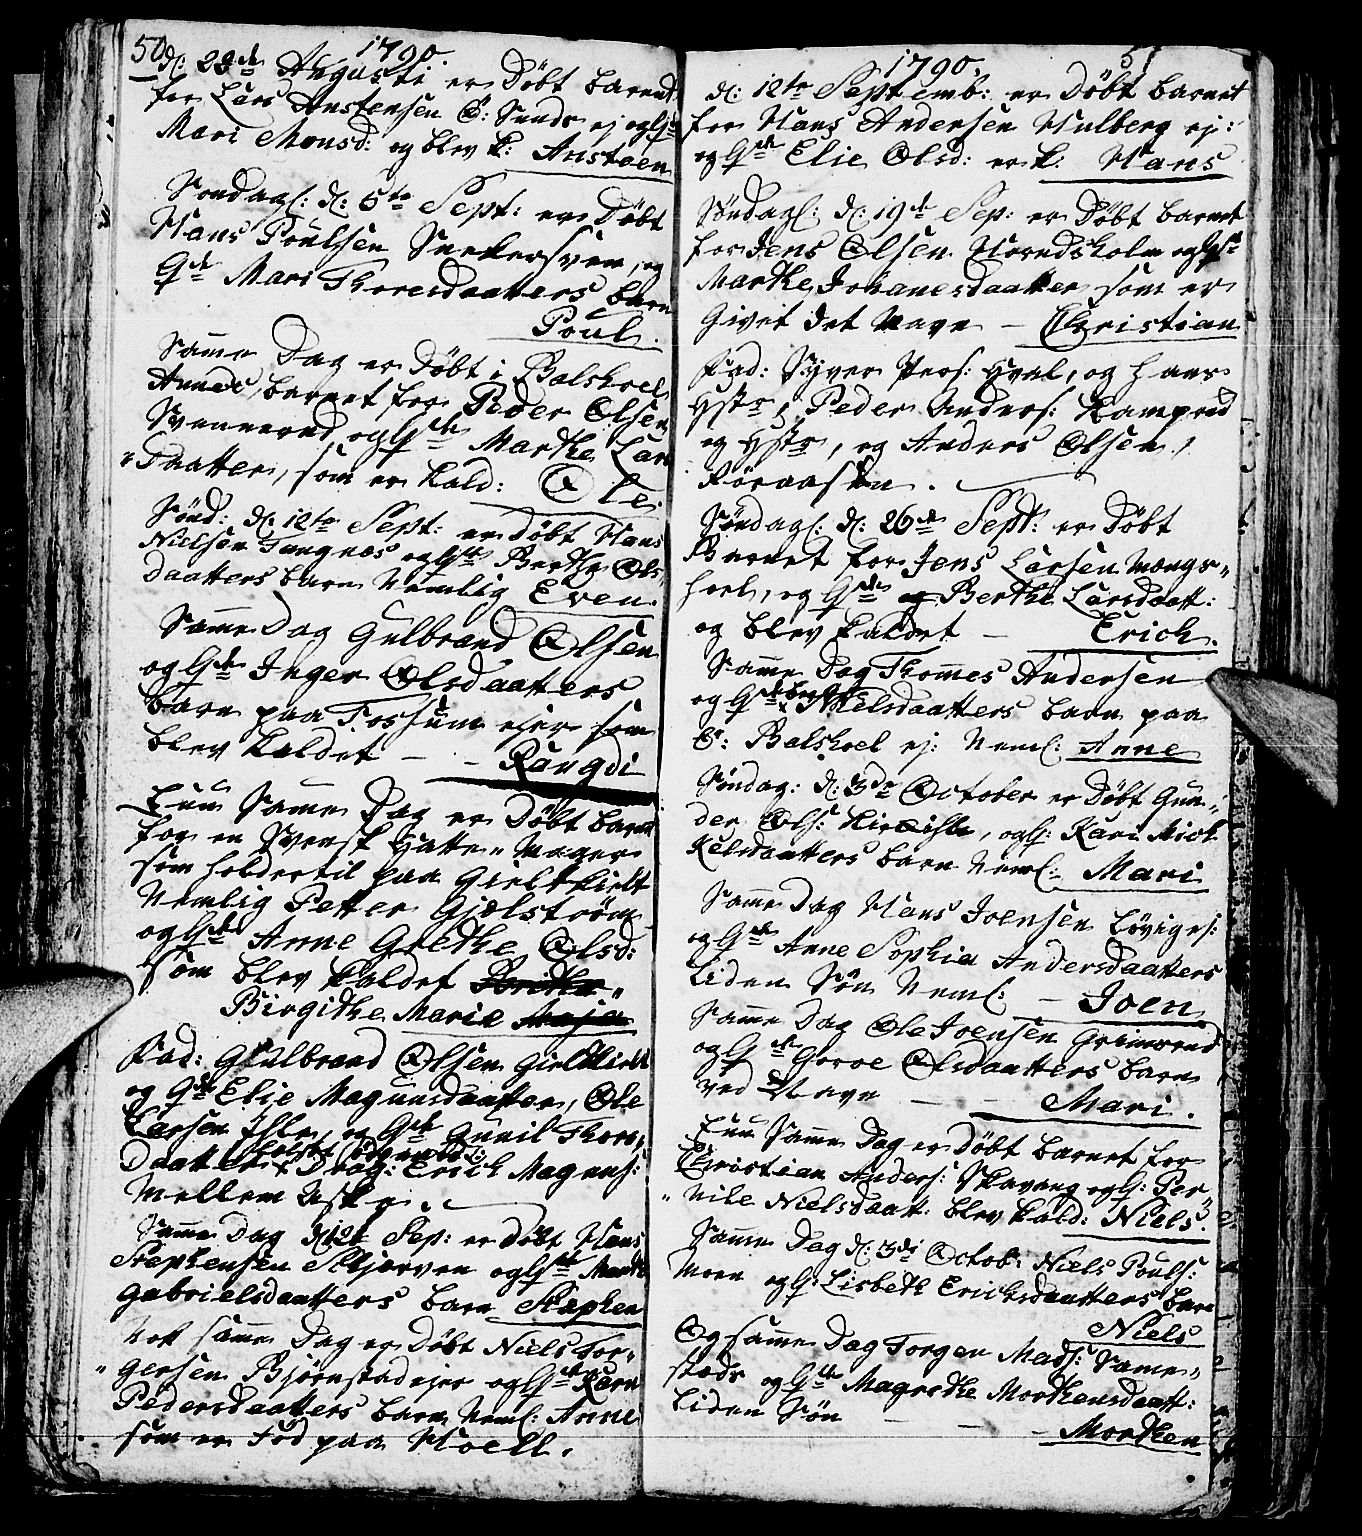 50. 1790.
d: 29de Augusti er Døbt barnet
for Lars Anstensen Ø: Sunds ej og Hst
Mari Monsd: og blev k: Ansteen
Søndags: d: 5te Sept: er Døbt
Hans Poulssen Snekersven, og
Hst Mari Thoresdaatters barn
Poul.
Samme Dag er Døbt i Balskoel
Annex, barnet for Peder Olsen
Svennerud, og Hst Marthe Lars
"Daatter, som er kald: Ole.
Sønd: d: 12te Sept: er døbt Hans
Nielsen Tangnæs og Hst Berthe Ols
daatters barn Nemlig Even.
Samme Dag Gulbrand Olsen
og Hst Inger Olsdaatters
barn paa Fossum ejer som
blev kaldet - - Rangdi
Euu Samme Dag er Døbt barnet
for en Svensk Hatte-Mager
som holder til paa Gielkield
Nemlig Petter Gjelstrøm
og Hst Anne Grethe Olsd:
som blev kaldet
Birgithe Marie Maja
Fad: Gulbrand Olsen Gielkield
og Hst Elie Magnusdaatter, Ole
Larsen og Hst Gunil Thors
Daatter Drag: Erich Magnus:
Mellem Aske.
Samme Dag d 12te Sep: er døbt Hans
Stephensen Skjørven og Hst Marthe
Gabrielsdaatters barn Stephen
Nok samme Dag er Døbt Niels Tor-
"gersen Bjørnstad ejer og Hst Karn
Pedersdaatters barn Neml: Anne
som er Fød paa Moell.
1790. 51
d: 12te Septemb: er Døbt barnet
for Hans Andersen Mulberg ej:
og Hst Elie Olsd: er k: Hans
Søndags: d: 19de Sep: er Døbt barnet
for Jens Olsen Horndsholm og Hst
Marthe Johanesdaatter som er
Givet det Navn - Christian
Fad: Syver Pers: Hval, og hans
Hstr, Peder Anders: Kamprud
og Hstr, og Anders Olsen,
Røraasen.
Søndags: d: 26de Sept: er Døbt
Barnet for Jens Larsen Mongs-
hoel, og Hst og Berthe Larsdaatt:
og blev kaldet - Erich.
Samme Dag Thommes Andersen
og Hst Nielsdaatters barn paa
Ø: Balskoel ej: Neml: Anne
Søndag: d: 3de October er Døbt Gun-
der Ols: og H: Kari Mich
Kelsdaatters barn Neml: Mari
Samme Dag Hans Joensen Løviges:
og Hst Anne Sophia Andersdaatters
Liden Søn Neml: - Joen
Samme Dag Ole Joensen Grimsrud
og Hst Goroe Olsdaatters barn
ved Navn - - Mari.
Euu Samme Dag er døbt barnet for
Christian Anders: Skavang og H: Per
"Nile Nielsdaatt. blev kald: Niels.
Samme Dag d: 3de Octob: Niels Pouls:
Moen og H: Lisbeth Erichsdaatters barn
Niels
Og samme Dag Torgen Mads: Same-
stads og Hst Magrethe Morthensdaatt:
Liden Søn - -
- Morthen